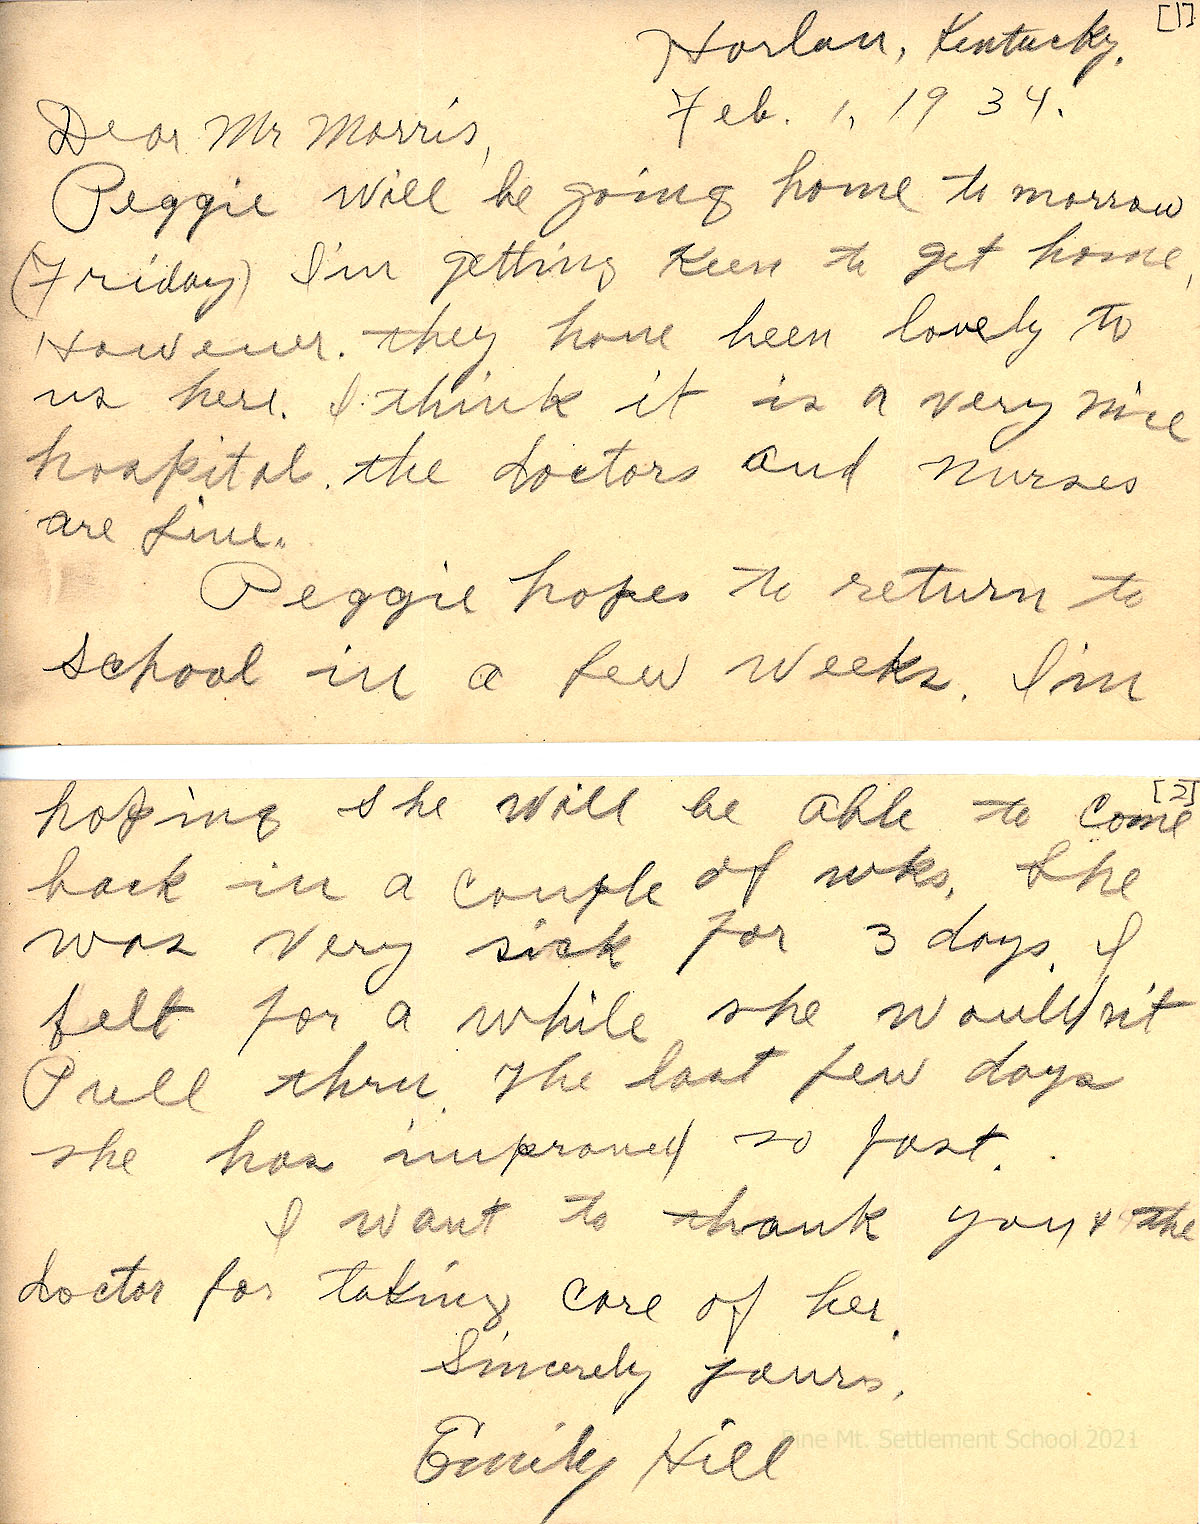 [1]
Harlan, Kentucky.
Feb. 1, 1934.
Dear Mr Morris,
Peggie will be going home to morrow
(Friday) I'm getting keen to get home,
However. they have been lovely to
us here. I think it is a very nice
hospital. the doctors and nurses
are fine.
Peggie hopes to return to
school in a few weeks. I'm
[2]
hoping she will be able to come
back in a couple of wks. She
was very sick for 3 days. I
felt for a while she wouldn't
Pull thru. The last few days
she has improved so fast.
I want to thank you & the
doctor for taking care of her.
Sincerely yours,
Emily Hill
Pine Mt. Settlement School 2021